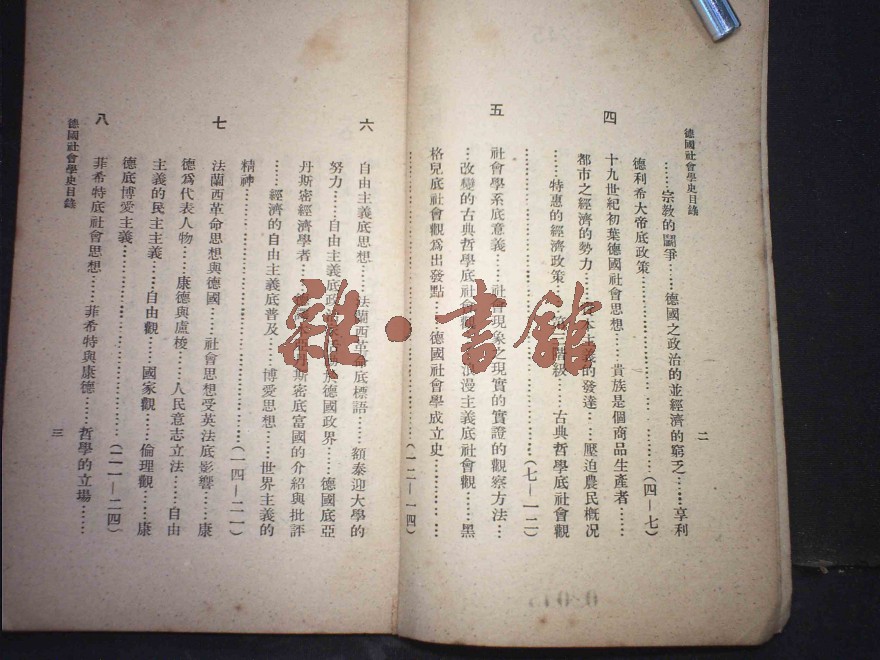 德國社會學史目錄
……宗教的鬪爭……德國之政治的並經濟的窮乏……亨利
德利希大帝底政策……………………(四—七)
四
十九世紀初葉德國社會思想……貴族是個商品生產者……
都市之經濟的勢力……資本主義的發達……壓迫農民概况
……特惠的經濟政策……階級……古典哲學底社會觀
……………………………………(七—一二)
五
社會學系底意義……社會現象之現實的實證的觀察方法…
…改變的古典哲學底社會觀……浪漫主義底社會觀……黑
格兒底社會觀爲出發點……德國社會學成立史……………
……………………………………(一二—一四)
二
六
自由主義底思想……法蘭西革命底標語……額泰迎大學的
努力……自由主義底政治 於德國政界……德國底亞
丹斯密經濟學者…… 丹斯密底富國的介紹與批評
……經濟的自由主義底普及……博愛思想……世界主義的
精神………………………………(一四—二一)
七
法蘭西革命思想與德國……社會思想受英法底影響……康
德爲代表人物……康德與盧梭……人民意志立法……自由
主義的民主主義……自由觀……國家觀……倫理觀……康
德底博愛主義……………………………(二一—二四)
八
菲希特底社會思想……菲希特與康德……哲學的立場……
德國社會學史目錄
三
雜·書館